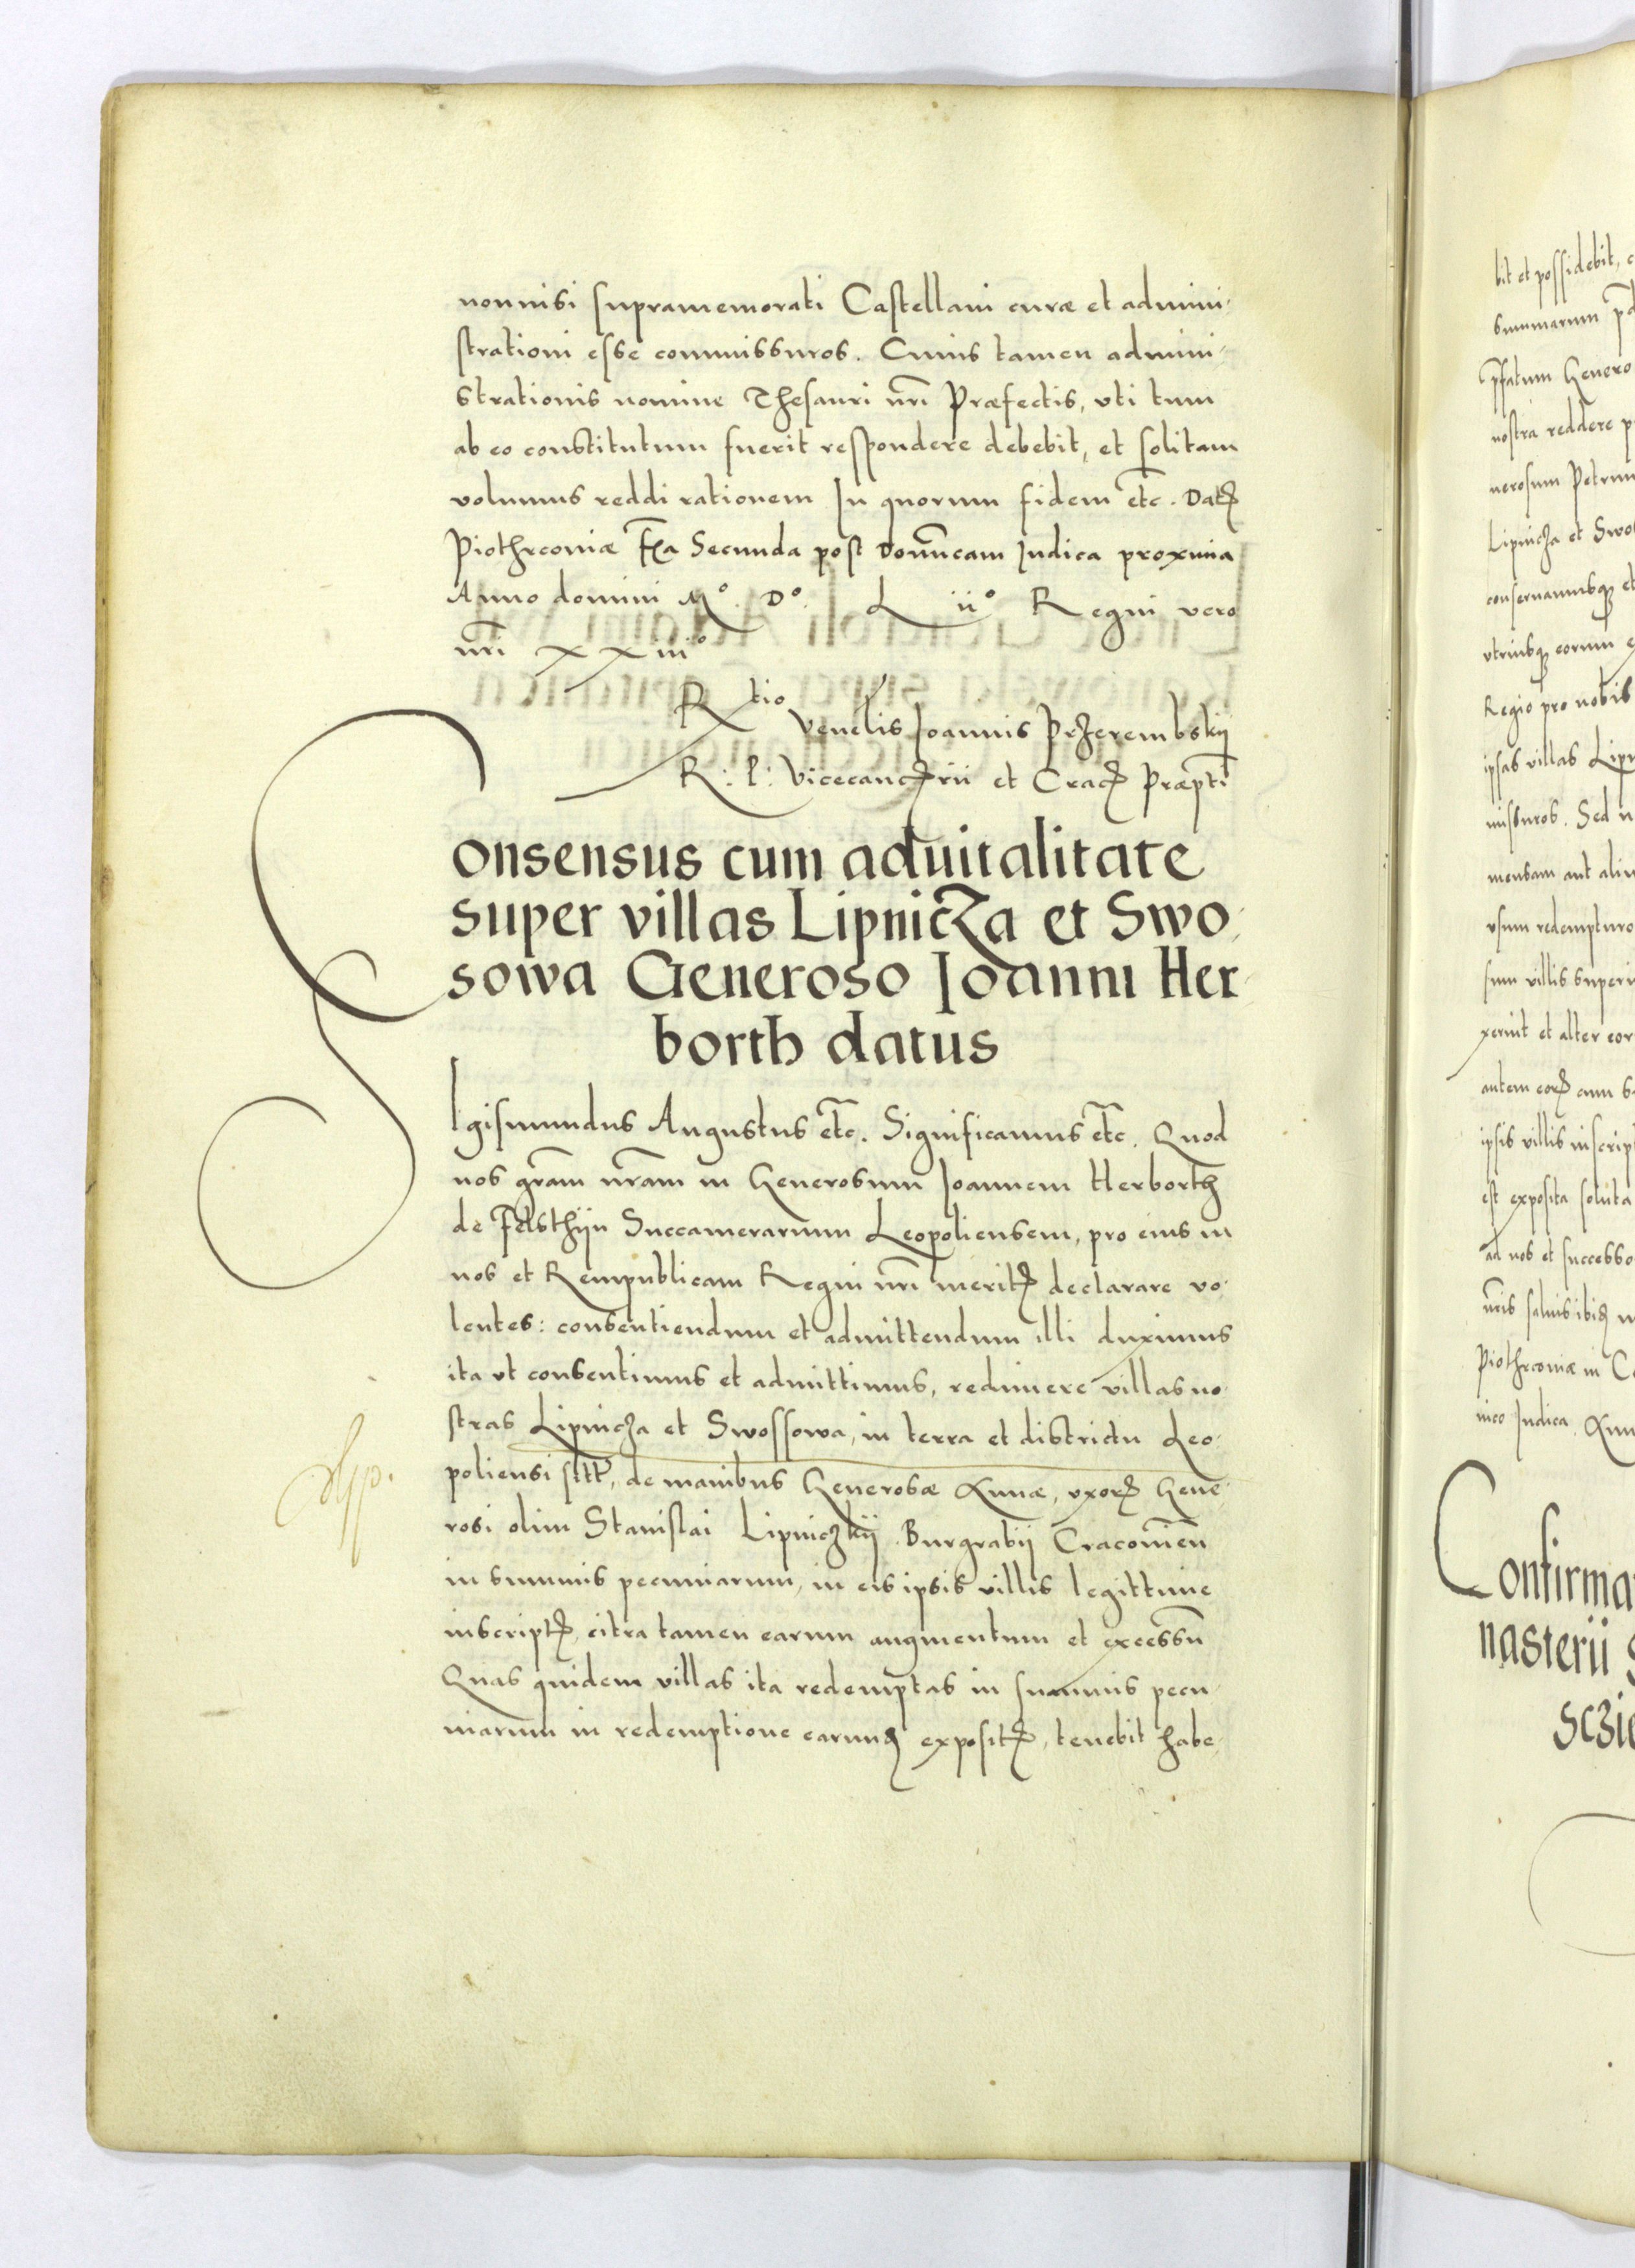 nonnisi supramemorati Castellani curæ et admini-
strationi esse commissuros. Cuius tamen admini-
strationis nomine Thesauri nri Præfectis, uti tum
ab eo constitutum fuerit respondere debebit, et solitam
volumus reddi rationem In quorum fidem etc. Datꝫ
Piothrcoviæ fra Secunda post Domīcam Iudica proxima
Anno domini Mº. Dº. L iiº Regni vero
nri xxiiiº
Rtio Venelis Joannis Przerembskij
R: P: Vicecancꝫrii et Cracꝫ Præpti
Consensus cum aduitalitate
super villas Lipnicza et Swo-
sowa Generoso Joanni Her-
borth datus
Sigismundus Augustus etc. Significamus etc. Quod
nos gram nram in Generosum Joannem Herborth
de Felsthijn Succamerarium Leopoliensem, pro eius in
nos et Rempublicam Regni nri meritꝫ declarare vo-
lentes: consentiendum et admittendum illi duximus
ita ut consentimus et admittimus, redimere villas no-
stras Lipnicza et Swossowa, in terra et districtu Leo-
poliensi sitꝫ, de manibus Generosæ Annæ, uxorꝫ Gene-
rosi olim Stanislai Lipniczkij Burgrabij Cracovień
in summis pecuniarum, in eis ipsis villis legittime
inscriptꝫ, citra tamen earum augmentum et excessū
Quas quidem villas ita redemptas in summis pecu-
niarum in redemptione earunꝫ expositꝫ, tenebit habe-
bit et possidebit,
summarum
pfatum Genero
nostra reddere
nerosum Petrum
Lipnicza et Swo
conservamusqꝫ et
utriusqꝫ eorum
Regio pro nobis
ipsas villas Lipn
missuros. Sed n
mensam aut aliu
usum redempturo
sum villis superi
xerint et alter eor
autem eorꝫ cum
ipsis villis inscript
est exposita soluta
ad nos et successo
nris salvis ibiꝫ
Piothrcoviæ in
nico Iudica. Ann
Confirma
nasterii
sczie